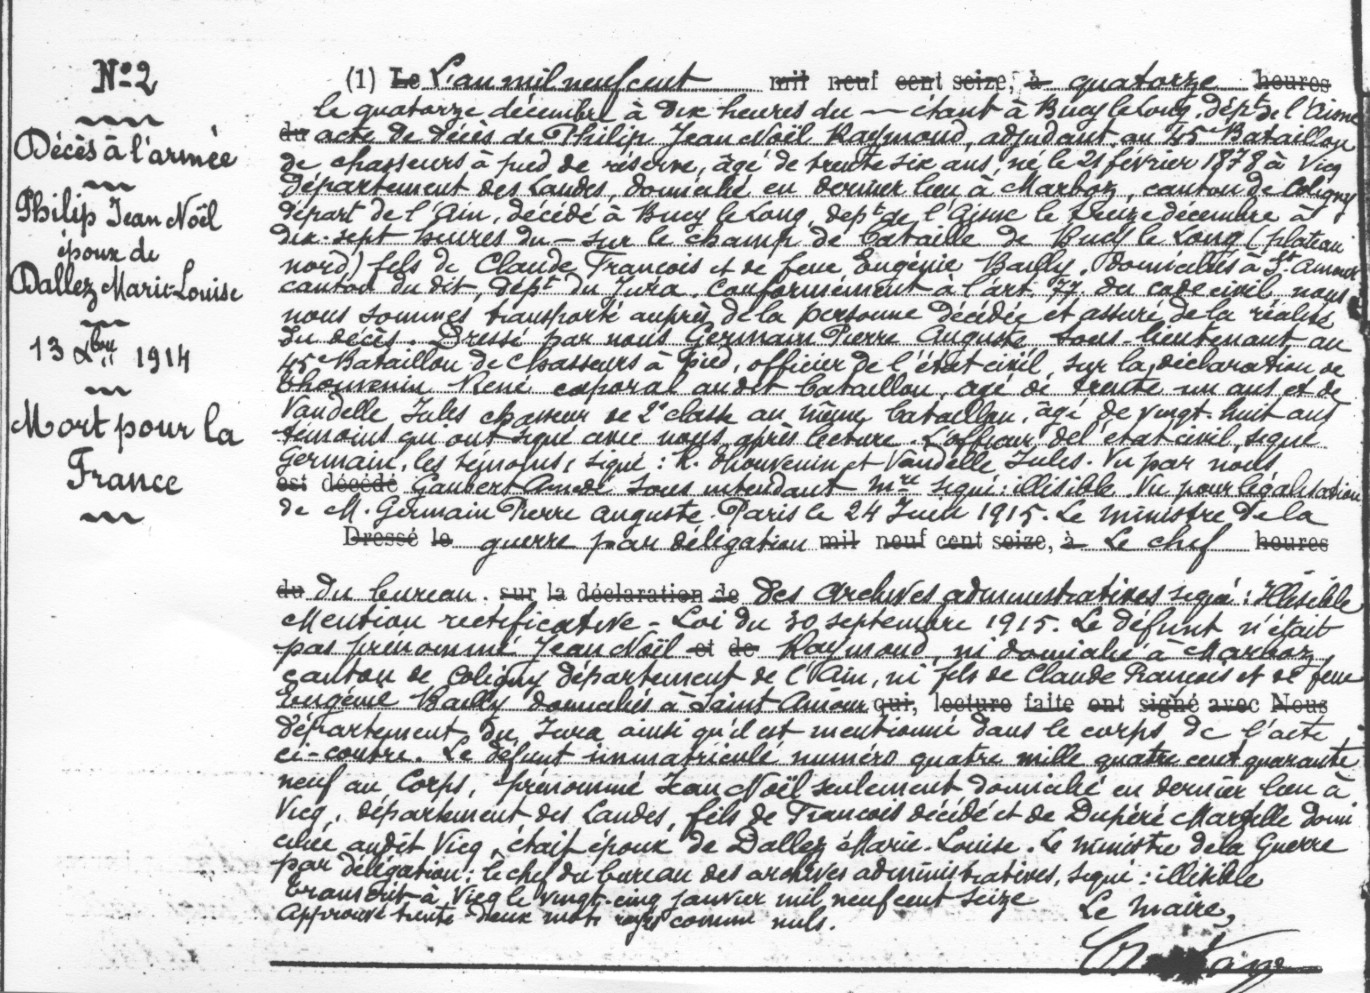 N° 2
Décès à l'armée
Philip Jean Noël
époux de
Dallez Marie-Louise
13 Xbre 1914
Mort pour la
France
(1) Le L'an mil neuf cent mil neuf cent seize, à quatorze heures
le quatorze décembre à dix heures du — étant à Bucy le Long, dépt de l'Aisne
du acte de décès de Philip Jean Noël Raymond, adjudant au 45e Bataillon
de chasseurs à pied de réserve, âgé de trente six ans, né le 21 février 1878 à Vicq
département des Landes, domicilié en dernier lieu à Marboz, canton de Coligny
départ de l'Ain, décédé à Bucy le Long, dept de l'Aisne le treize décembre à
dix-sept heures du — sur le champ de bataille de Bucy le Long (plateau
nord) fils de Claude François et de feue Eugénie Bailly, domiciliés à St Amour
canton du dit, dépt du Jura. Conformément à l'art. 77 du code civil, nous
nous sommes transporté auprès de la personne décédée et assuré de la réalité
du décès. Dressé par nous Germain Pierre Auguste sous-lieutenant au
45e Bataillon de Chasseurs à pied, officier de l'état civil, sur la déclaration de
Thouvenin René caporal audit bataillon, âgé de trente un ans et de
Vandelle Jules chasseur de 2e classe au même bataillon, âgé de vingt-huit ans
témoins qui ont signé avec nous après lecture. L'officier de l'état civil, signé
Germain, les témoins, signé : R. Thouvenin et Vandelle Jules. Vu par nous
est décédé Gaubert sous intendant mre signé : illisible. Vu pour légalisation
de M. Germain Pierre Auguste. Paris le 24 Juin 1915. Le ministre de la
Dressé le guerre par délégation mil neuf cent seize, à Le chef heures
du du bureau. sur la déclaration de des archives administratives signé : Illisible
Mention rectificative - Loi du 30 septembre 1915. Le défunt n'était
pas prénommé Jean Noël et de Raymond, ni domicilié à Marboz,
canton de Coligny département de l'Ain, ni fils de Claude François et de feue
Eugénie Bailly domiciliés à Saint Amour qui, lecture faite ont signé avec Nous
département du Jura ainsi qu'il est mentionné dans le corps de l'acte
ci-contre. Le défunt immatriculé numéro quatre mille quatre cent quarante
neuf au Corps, prénommé Jean Noël seulement domicilié en dernier lieu à
Vicq, département des Landes, fils de François décédé et de Dupéré Marcelle domi
ciliée audit Vicq, était époux de Dallez Marie-Louise. Le ministre de la Guerre
par délégation : le chef du bureau des archives administratives, signé : illisible
Transcrit à Vicq le vingt-cinq janvier mil neuf cent seize
Approuvé trente deux mots rayés comme nuls.
Le Maire,